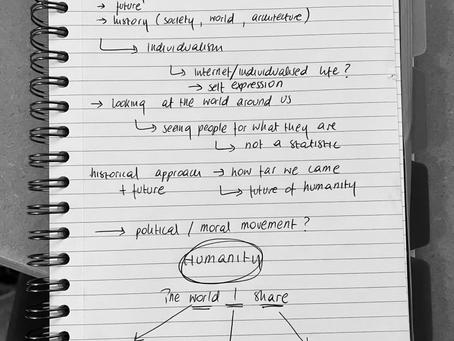 → future
→ history (society, world, architecture)
↳ individualism
↳ internet/individualised life?
→ self expression
→ looking at the world around us
↳ seeing people for what they are
↳ not a statistic
historical approach → how far we came
+ future ↳ future of humanity
→ political / moral movement?
Humanity
The world I share